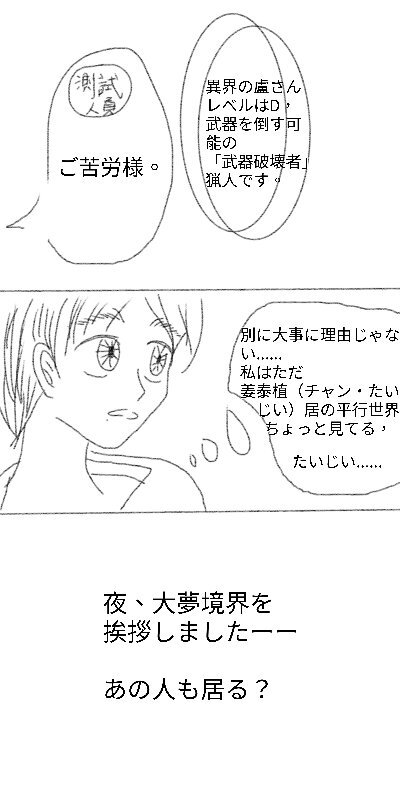 異界の盧さん
レベルはD，
武器を倒す可
能の
「武器破壊者」
猟人です。
測試
人員
ご苦労様。
別に大事に理由じゃな
い......
私はただ
姜泰植（チャン・たい
じい）居の平行世界
ちょっと見てる，
たいじい......
夜、大夢境界を
挨拶しましたーー
あの人も居る？